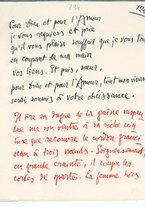 284
Pour Dieu et pour l'Amour
je vous requiers et prie
qu'il vous plaise souffrir que je vous
en coupant de ma main
vos liens. Et puis, sœur,
pour Dieu et pour l'Amour, tout mon vivant
serai soumis à votre obéissance.
Il tire sa dague de la gaine
sur son ventre à sa riche cein
ture que recouvre le cordon francis
cain à trois nœuds. Soigneusement,
en grande crainte, il coupe les
cordes de
La femme